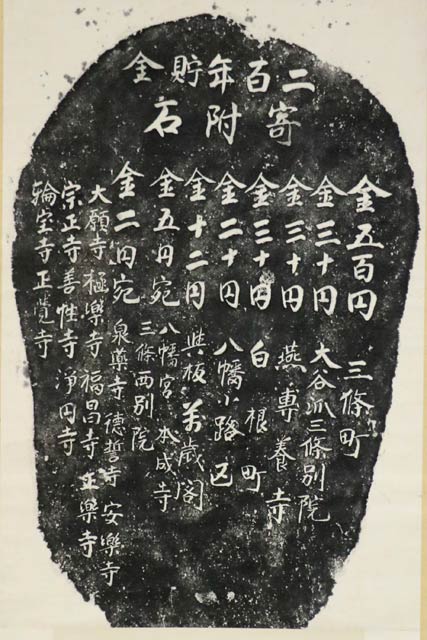 二百年貯金
寄附石
金五百円 三條町
金三十円 大谷派三條別院
金三十円 燕專養寺
金三十円 白根町
金二十円 八幡小路区
金十二円 與板萬歳閣
金五円宛 八幡宮 本成寺
三條西別院
金二円宛 泉薬寺 德誓寺 安樂寺
大願寺 極樂寺 福昌寺 正樂寺
宗正寺 善性寺 淨円寺
輪宝寺 正覺寺